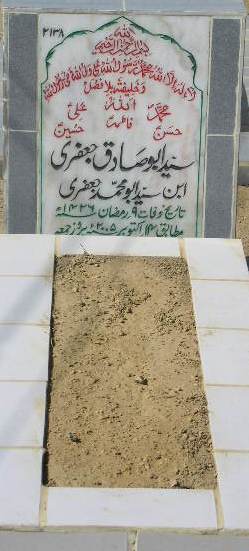 ۲۱۳۸
اللہ
بسم اللہ الرحمن الرحیم
لا الہ الا اللہ محمد رسول اللہ علی ولی اللہ وصی رسول اللہ
و خلیفتہ بلا فصل
محمد اللہ علی
حسن فاطمہ حسین
سید ابو صادق جعفری
ابن سید ابو محمد جعفری
تاریخ وفات ۹ رمضان ۱۴۲۶ھ
مطابق ۱۴ اکتوبر ۲۰۰۵ء بروز جمعہ